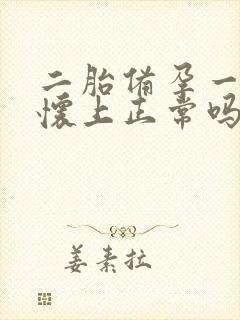 二胎备孕一
怀上正常吗
姜素拉